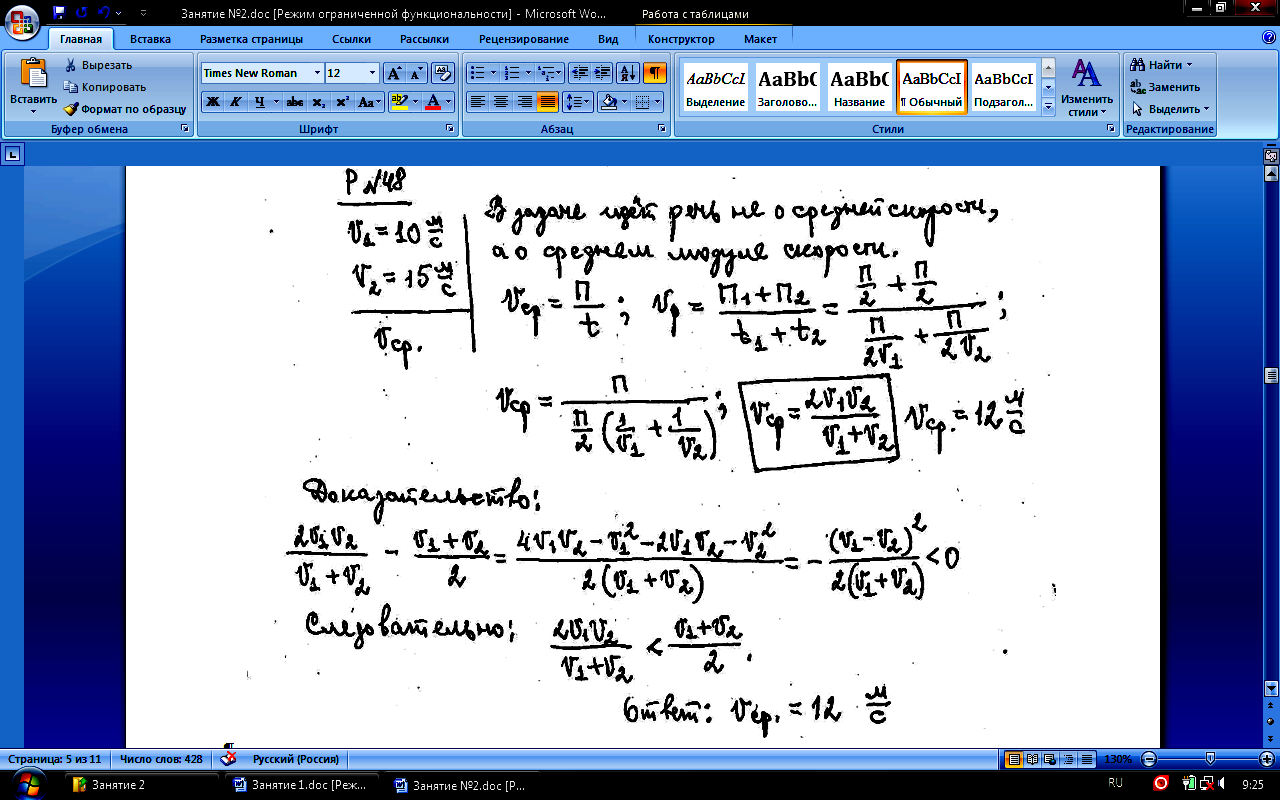 Занятие №2.doc [Режим ограниченной функциональности] - Microsoft Wo...
Работа с таблицами
Главная Вставка Разметка страницы Ссылки Рассылки Рецензирование Вид Конструктор Макет
Вставить
Вырезать
Копировать
Формат по образцу
Буфер обмена
Times New Roman 12
Ж К Ч abc x₂ x² Aa
Шрифт
Абзац
АаBbCcI АаBbС АаBbС АаBbCcI АаBbCcI
Выделение Заголово... Название ¶ Обычный Подзагол...
Стили
Изменить стили
Найти
Заменить
Выделить
Редактирование
Р №48
V₁ = 10 м/с
V₂ = 15 м/с
Vср.
В задаче идёт речь не о средней скорости,
а о среднем модуле скорости.
Vср = П/t; Vр = (П₁ + П₂)/(t₁ + t₂) = (П/2 + П/2)/(П/2V₁ + П/2V₂);
Vср = П/(П/2 (1/V₁ + 1/V₂)); Vср = 2V₁V₂/(V₁ + V₂) Vср. = 12 м/с
Доказательство:
2V₁V₂/(V₁ + V₂) - (V₁ + V₂)/2 = (4V₁V₂ - V₁² - 2V₁V₂ - V₂²)/(2(V₁ + V₂)) = - (V₁ - V₂)²/(2(V₁ + V₂)) < 0
Следовательно: 2V₁V₂/(V₁ + V₂) < (V₁ + V₂)/2.
Ответ: Vср. = 12 м/с
¶
Страница: 5 из 11 Число слов: 428 Русский (Россия) 130%
Занятие 2 Занятие 1.doc [Реж... Занятие №2.doc [Р... RU 9:25